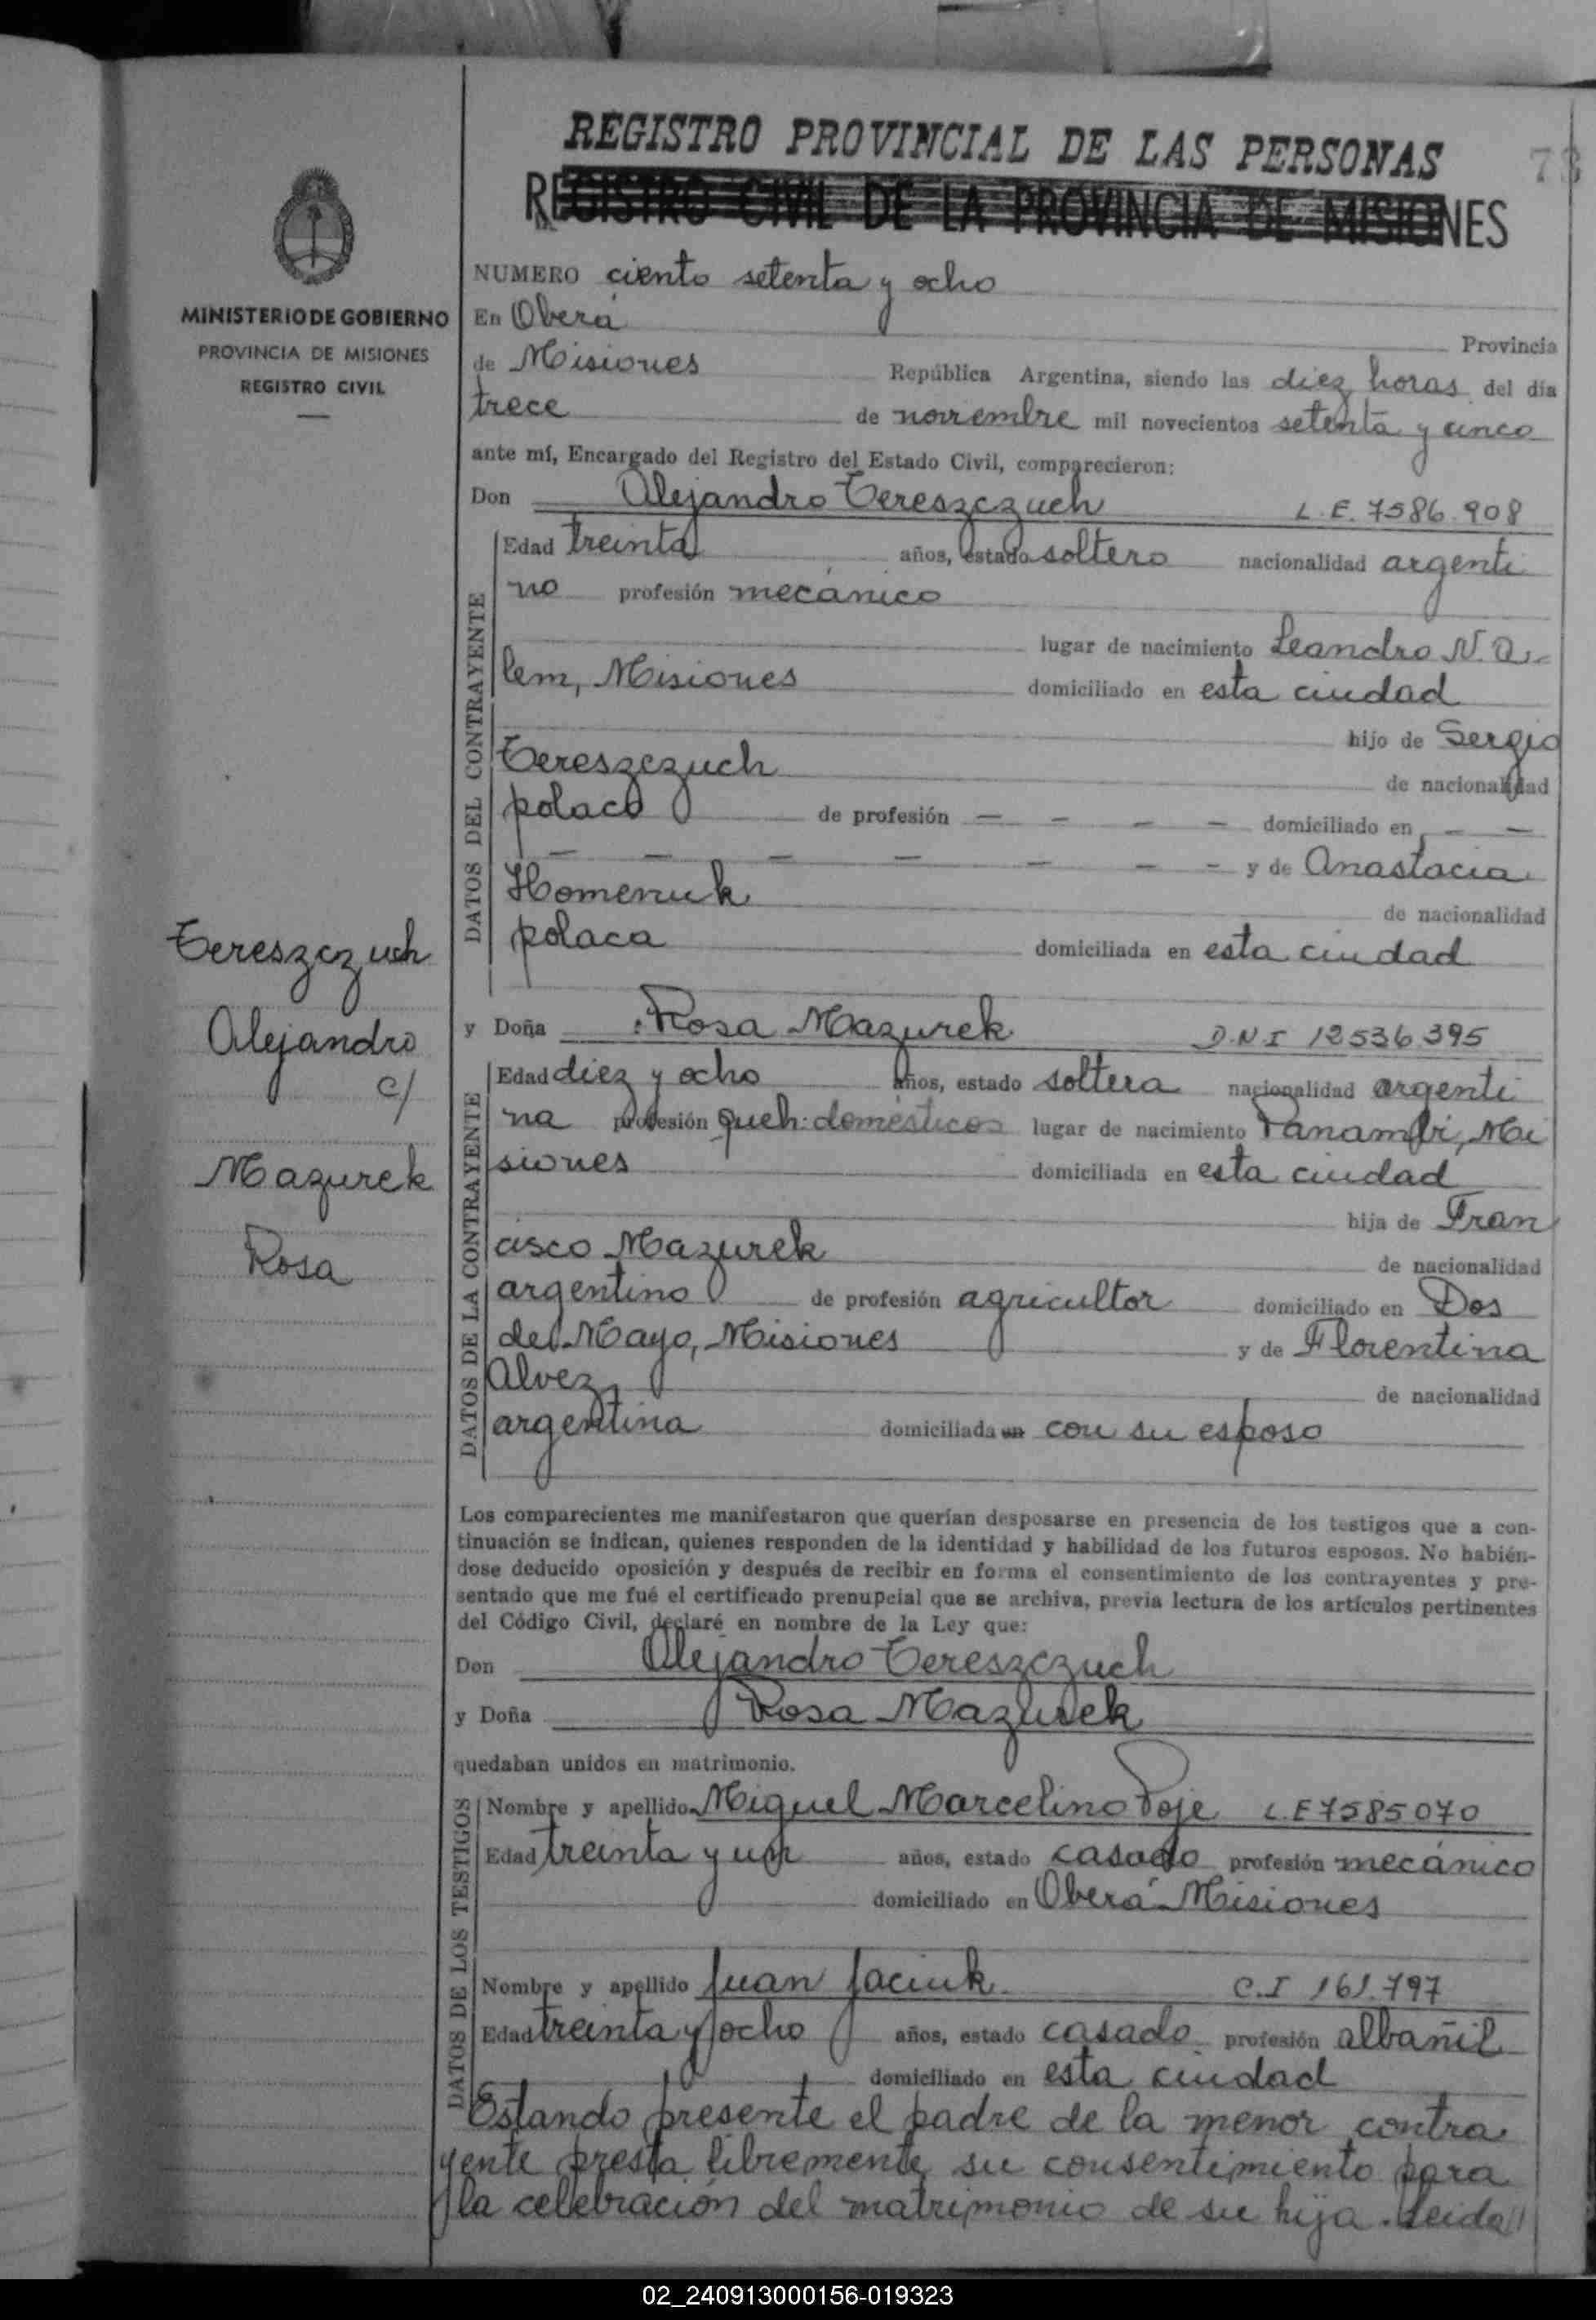 REGISTRO PROVINCIAL DE LAS PERSONAS
73
REGISTRO CIVIL DE LA PROVINCIA DE MISIONES
MINISTERIO DE GOBIERNO
PROVINCIA DE MISIONES
REGISTRO CIVIL
Tereszczuch
Alejandro
c/
Mazurek
Rosa
NUMERO ciento setenta y ocho
En Oberá Provincia
de Misiones República Argentina, siendo las diez horas del día
trece de noviembre mil novecientos setenta y cinco
ante mí, Encargado del Registro del Estado Civil, comparecieron:
Don Alejandro Tereszczuch L.E. 7586.908
DATOS DEL CONTRAYENTE
Edad treinta años, estado soltero nacionalidad argenti
no profesión mecánico
lugar de nacimiento Leandro N. A-
lem, Misiones domiciliado en esta ciudad
hijo de Sergio
Tereszczuch de nacionalidad
polaco de profesión — — — — domiciliado en — —
— — — — — — — y de Anastacia
Homeniuk de nacionalidad
polaca domiciliada en esta ciudad
y Doña Rosa Mazurek D.N.I 12536395
DATOS DE LA CONTRAYENTE
Edad diez y ocho años, estado soltera nacionalidad argenti
na profesión queh. domésticos lugar de nacimiento Panambi, Mi
siones domiciliada en esta ciudad
hija de Fran
cisco Mazurek de nacionalidad
argentino de profesión agricultor domiciliado en Dos
de Mayo, Misiones y de Florentina
Alvez de nacionalidad
argentina domiciliada en con su esposo
Los comparecientes me manifestaron que querían desposarse en presencia de los testigos que a con-
tinuación se indican, quienes responden de la identidad y habilidad de los futuros esposos. No habién-
dose deducido oposición y después de recibir en forma el consentimiento de los contrayentes y pre-
sentado que me fué el certificado prenupcial que se archiva, previa lectura de los artículos pertinentes
del Código Civil, declaré en nombre de la Ley que:
Don Alejandro Tereszczuch
y Doña Rosa Mazurek
quedaban unidos en matrimonio.
DATOS DE LOS TESTIGOS
Nombre y apellido Miguel Marcelino Poje L.E 7585070
Edad treinta y un años, estado casado profesión mecánico
domiciliado en Oberá Misiones
Nombre y apellido Juan Jaciuk C.I 161.797
Edad treinta y ocho años, estado casado profesión albañil
domiciliado en esta ciudad
Estando presente el padre de la menor contra
yente presta libremente su consentimiento para
la celebración del matrimonio de su hija. Leida//
02_240913000156-019323